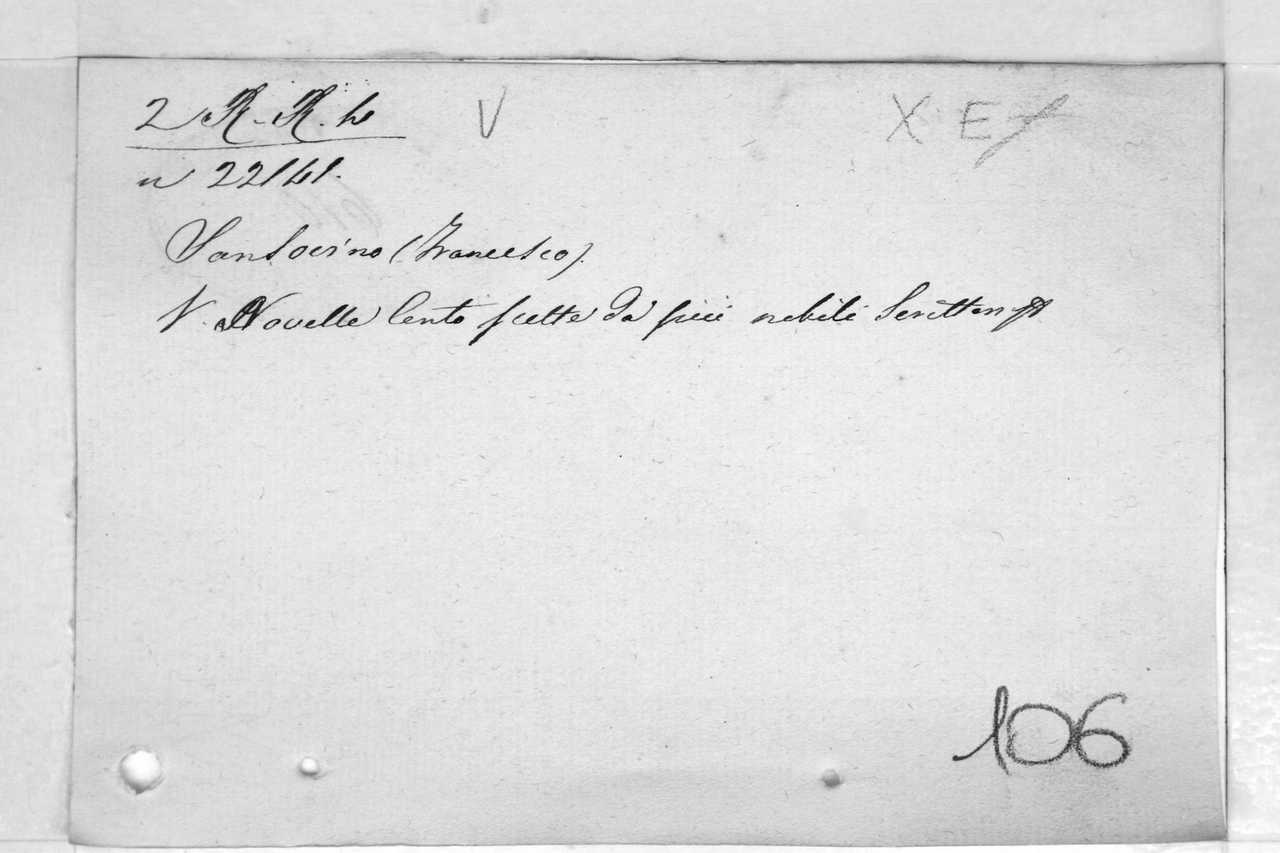 2 R. R. h V X E
n 22141.
Sansovino (Francesco).
V. Novelle Cento scelte da più nobili Scrittori
106